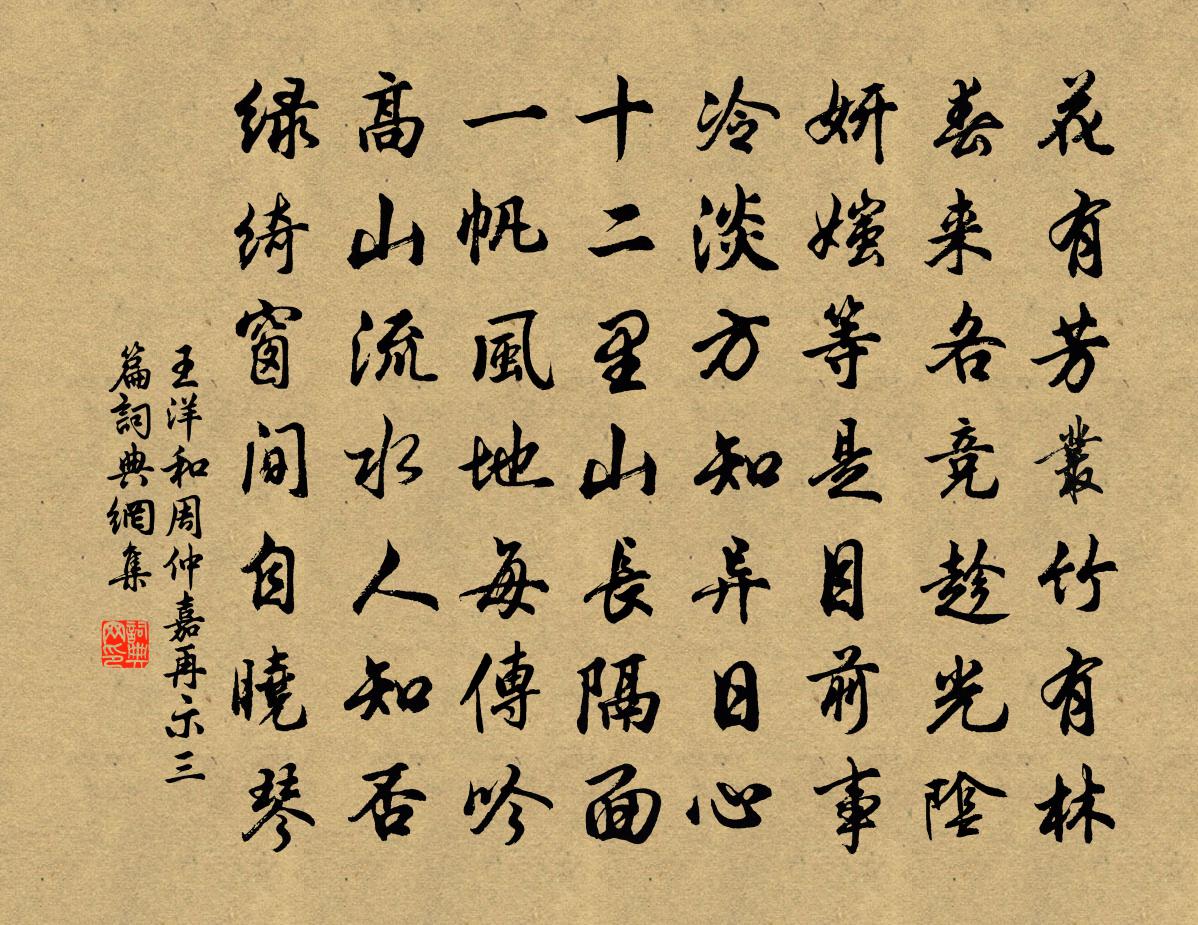 花有芳叢竹有林
春来各竞趁光陰
妍媸等是目前事
冷淡方知异日心
十二里山長隔面
一帆風地每傳吟
高山流水人知否
绿绮窗间自曉琴
王洋和周仲嘉再示三
篇詞典網集
詞典網印